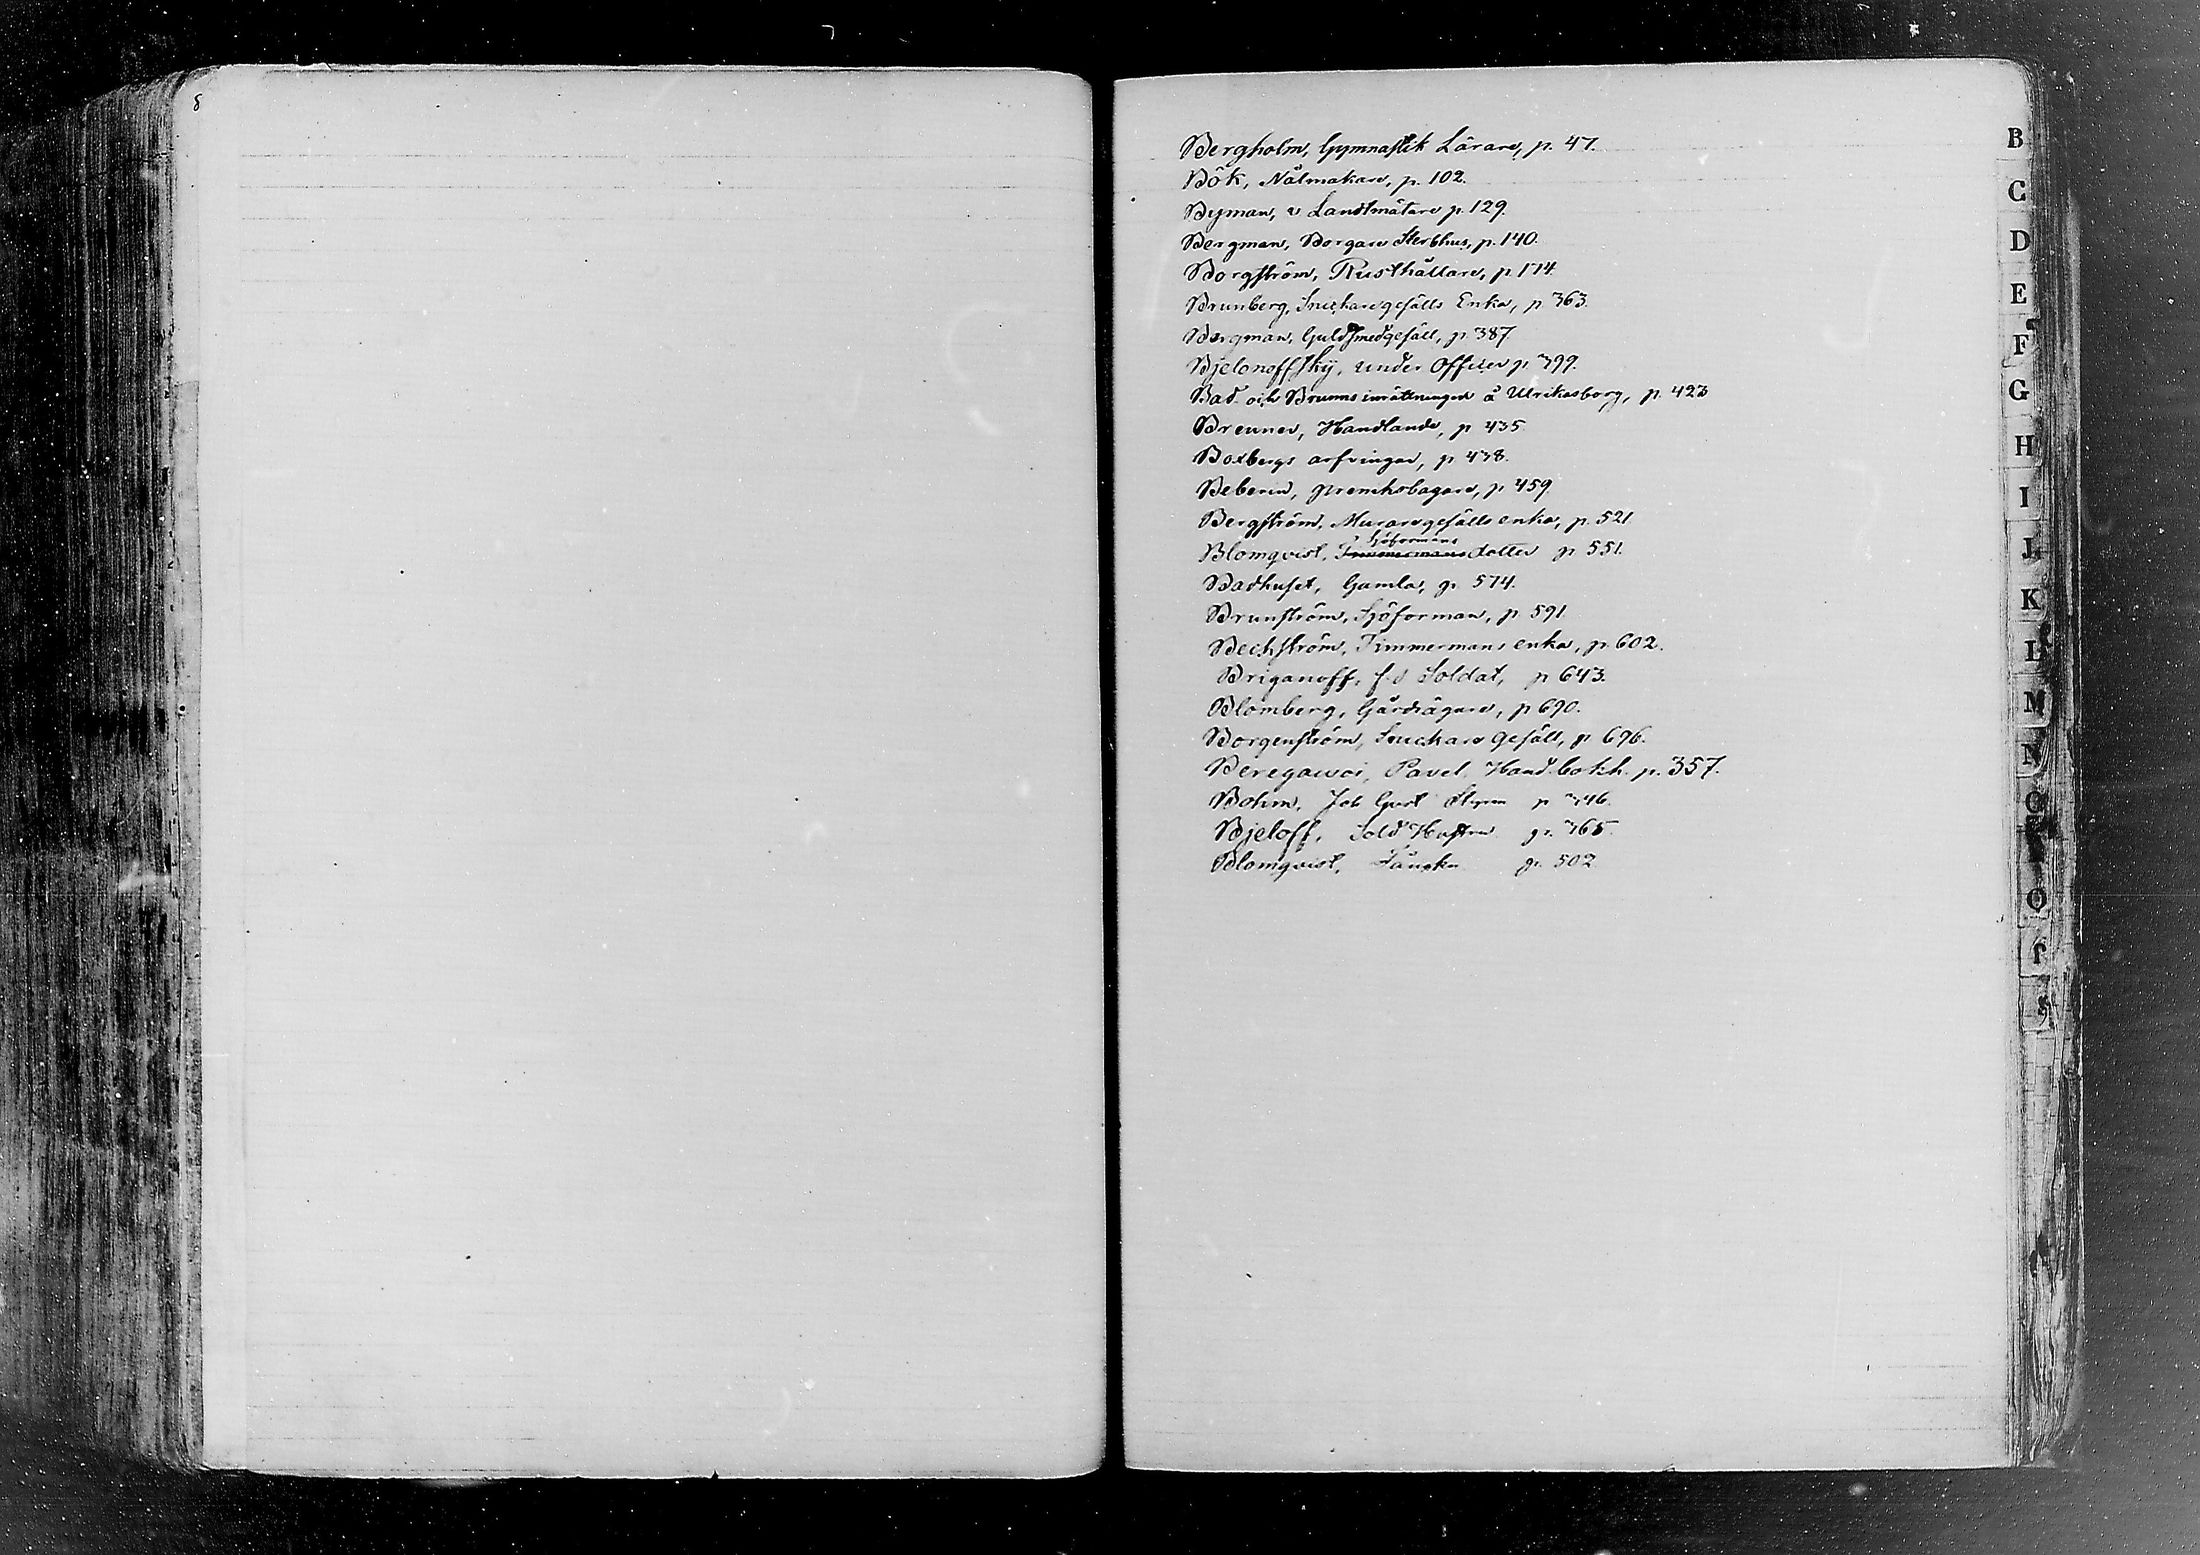 8
Bergholm, Gymnastik Lärare, p. 47.
Bök, Nålmakare, p. 102.
Byman, v Landtmätare p. 129.
Bergman, Borgare Sterbhus, p. 140.
Borgström, Rusthållare, p 174.
Brunberg, Snickaregesälls Enka, p 363.
Bergman, Guldsmedgesäll, p. 387.
Bjelonoffsky, under Officer p 399.
Bad- och Brunns inrättningen å Ulrikasborg, p. 423
Brenner, Handlande, p 435
Boxbergs arfvingar, p 438.
Beberin, fransksbagare, p 459.
Bergström, Muraregesälls enka, p. 521
Sjöformans
Blomqvist, Timmermans dotter p 551.
Badhuset, Gamla, p. 574.
Brunström, Sjöforman, p 591
Beckström, Timmermans enka, p. 602.
Briganoff, f.d Soldat, p 643.
Blomberg, Gårdsägare, p 690.
Borgenström, Snickare Gesäll, p 696.
Beregawoi, Pavel. Hand. bokh. p. 357.
Bohm, Joh Gust p 346.
Bjeloff, Sold Hustru p. 365
Blomqvist, p. 502
B
C
D
E
F
G
H
I
J
K
L
M
N
O
Q
P
S